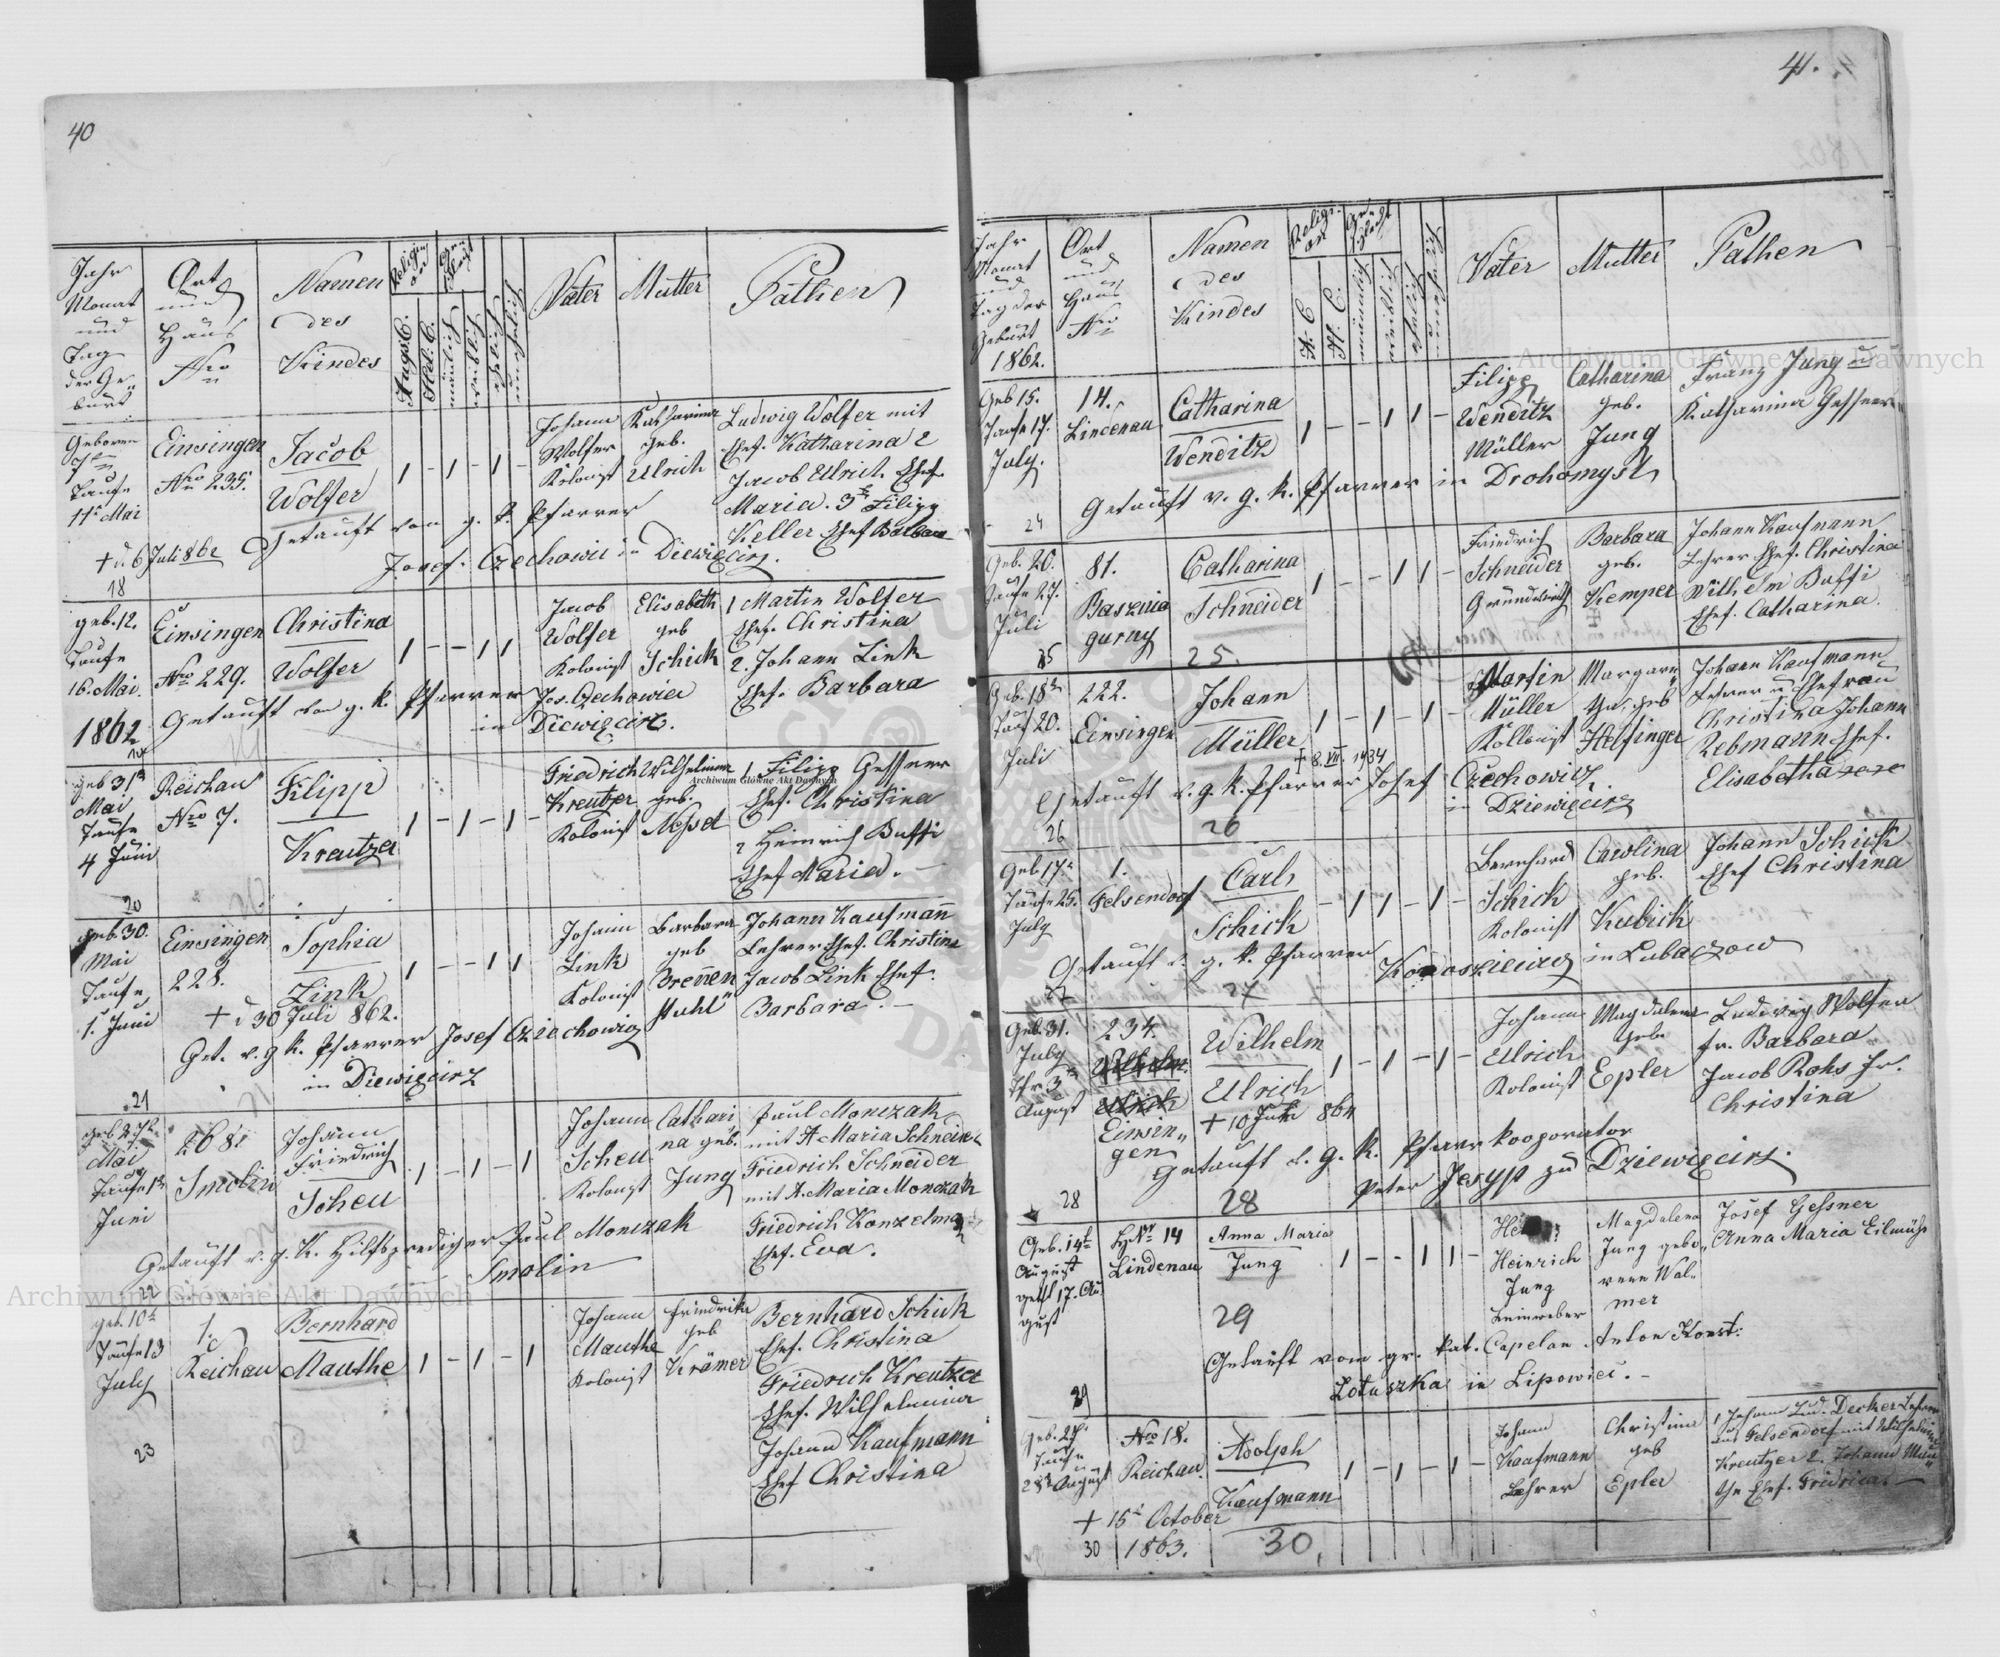 40
Jahr
Monat
und
Tag
der Ge-
burt
Ort
und
Haus
Nro
Namen
des
Kindes
Religion
Augs. C.
Hel. C.
Geschlecht
mänlich
weiblich
ehelich
unehelich
Vater
Mutter
Pathen
Geboren
Taufe
11t Mai
Einsingen
Nro 235.
Jacob
Wolfer
1 - 1 - 1 -
Johann
Wolfer
Kolonist
Katharina
geb.
Ulrich
Ludwig Wolfer mit
Ehef. Katharina 2
Jacob Ulrich Ehef.
Maria. 3 Filipp
Keller Ehef Barbara
Getauft von g. k. Pfarrer
Josef Czechowicz in Diewięcirz.
+ d. 6 Juli 862
18
geb. 12.
Taufe
16. Mai.
1862
Einsingen
Nro 229.
Christina
Wolfer
1 - - 1 1
Jacob
Wolfer
Kolonist
Elisabeth
geb
Schick
1 Martin Wolfer
Ehef. Christina
2. Johann Link
Ehef. Barbara
Getauft von g. k. Pfarrer Jos. Czechowicz
in Diewięcirz.
geb 31
Mai
Taufe
4 Juni
Reichau
Nro 7.
Filipp
Kreutzer
1 - 1 - 1 -
Friedrich
Kreutzer
Kolonist
Wilhelmina
geb.
Nessel
1. Filipp Gessner
Ehef. Christina
2 Heinrich Buffi
Ehef Maria. -
20
geb. 30.
Mai
Taufe
1. Juni
Einsingen
228.
Sophia
Link
+ d 30 Juli 862.
1 - - 1 1
Johann
Link
Kolonist
Barbara
geb
Breñen
Stuhl
Johann Kaufmann
Lehrer Ehef. Christina
Jacob Link Ehef.
Barbara. -
Get. v. g k. Pfarrer Josef Cziechowicz
in Diewięcirz
21
geb 27
Mai
Taufe 1
Juni
268.
Smolin
Johann
Friedrich
Scheu
1 - 1 - 1
Johann
Scheu
Kolonist
Cathari
na geb.
Jung
Paul Monczak
mit A Maria Schneider
Friedrich Schneider
mit A. Maria Monczak
Friedrich Konzelman
Ehef. Eva.
Getauft v. g. K. Hilfsprediger Paul Monczak
Smolin
22
geb. 10t
Taufe 13
July
1.
Reichau
Bernhard
Mauthe
1 - 1 - 1
Johann
Mauthe
Kolonist
Friedrika
geb
Krämer
Bernhard Schick
Ehef. Christina
Friedrich Kreutzer
Ehef. Wilhelmina
Johann Kaufmann
Ehef Christina
23
41.
Jahr
Monat
und
Tag der
Geburt
1862.
Ort
und
Haus
Nro
Namen
des
Kindes
Religi-
on
A. C
H. C.
Geschlecht
männlich
weiblich
ehelich
Vater
Mutter
Pathen
Geb 15.
Taufe 17.
July.
14.
Lindenau
Catharina
Wenditz
1 - - 1 1 -
Filipp
Wenditz
Müller
Catharina
geb.
Jung
Franz Jung u
Katharina Gessner
Getauft v. g. k. Pfarrer in Drohomysl
24
Geb. 20.
Taufe 27.
Juli
81.
Basznia
gurny
Catharina
Schneider
1 - - 1 1 -
Friedrich
Schneider
Grundwirth
Barbara
geb.
Kemper
Johann Kaufmann
Lehrer Ehef. Christina
Wilhelm Buffi
Ehef. Catharina.
25
25.
Geb. 18
Tauf 20.
Juli
222.
Einsingen
Johann
Müller
+ 8. VII. 1934
1 - 1 - 1 -
Martin
Müller
Kollonist
Margare
tha, geb
Helfinger
Johann Kaufmann
Lehrer u Ehefrau
Christina Johann
Rebmann Ehef.
Elisabetha
Getauft v. g. k. Pfarrer Josef Czechowicz
in Dziewięcirz
26
26
Geb 17
Taufe 25.
July
1.
Felsendorf
Carl
Schick
- 1 1 - 1 -
Bernhard
Schick
Kolonist
Carolina
geb.
Kubick
Johann Schick
Ehef Christina
Getauft v. g. k. Pfarrer in Lubaczow
27
27
Geb. 31.
July
August
234.
Einsin„
gen
Wilhelm
Ulrich
1 - 1 - 1 -
Johann
Ulrich
Kolonist
Magdalena
geb.
Epler
Ludwig Wolfer
fr. Barbara
Jacob Rohs fr.
Christina
Getauft v. g. K. Pfarrkooporator
Peter Jesyp zu Dziewięcirz.
28
28
Geb. 14t
August
getft 17. Au
gust
HNr 14
Lindenau
Anna Maria
Jung
1 - - 1 1 -
Heinrich
Jung
Leinweber
Magdalena
Jung gebo„
rene Wal„
mer
Josef Gessner
Anna Maria Eilmüss
29
Getauft vom gr. kat. Capelan Anton Konst:
Lotuszka in Lipowiec. -
29
Geb. 27.
Taufe
28t August
Nro 18.
Reichau
Adolph
Kaufmann
1 - 1 - 1 -
Johann
Kaufmann
Lehrer
Christina
geb
Epler
1 Johann Lud. Decker Lehrer
aus Felsendorf mit Wilhelmine
Kreutzer 2. Johann Mau
the Ehef. Fridrica. -
+ 15t October
1863.
30
30.
Archiwum Główne Akt Dawnych
Archiwum Główne Akt Dawnych
Archiwum Główne Akt Dawnych